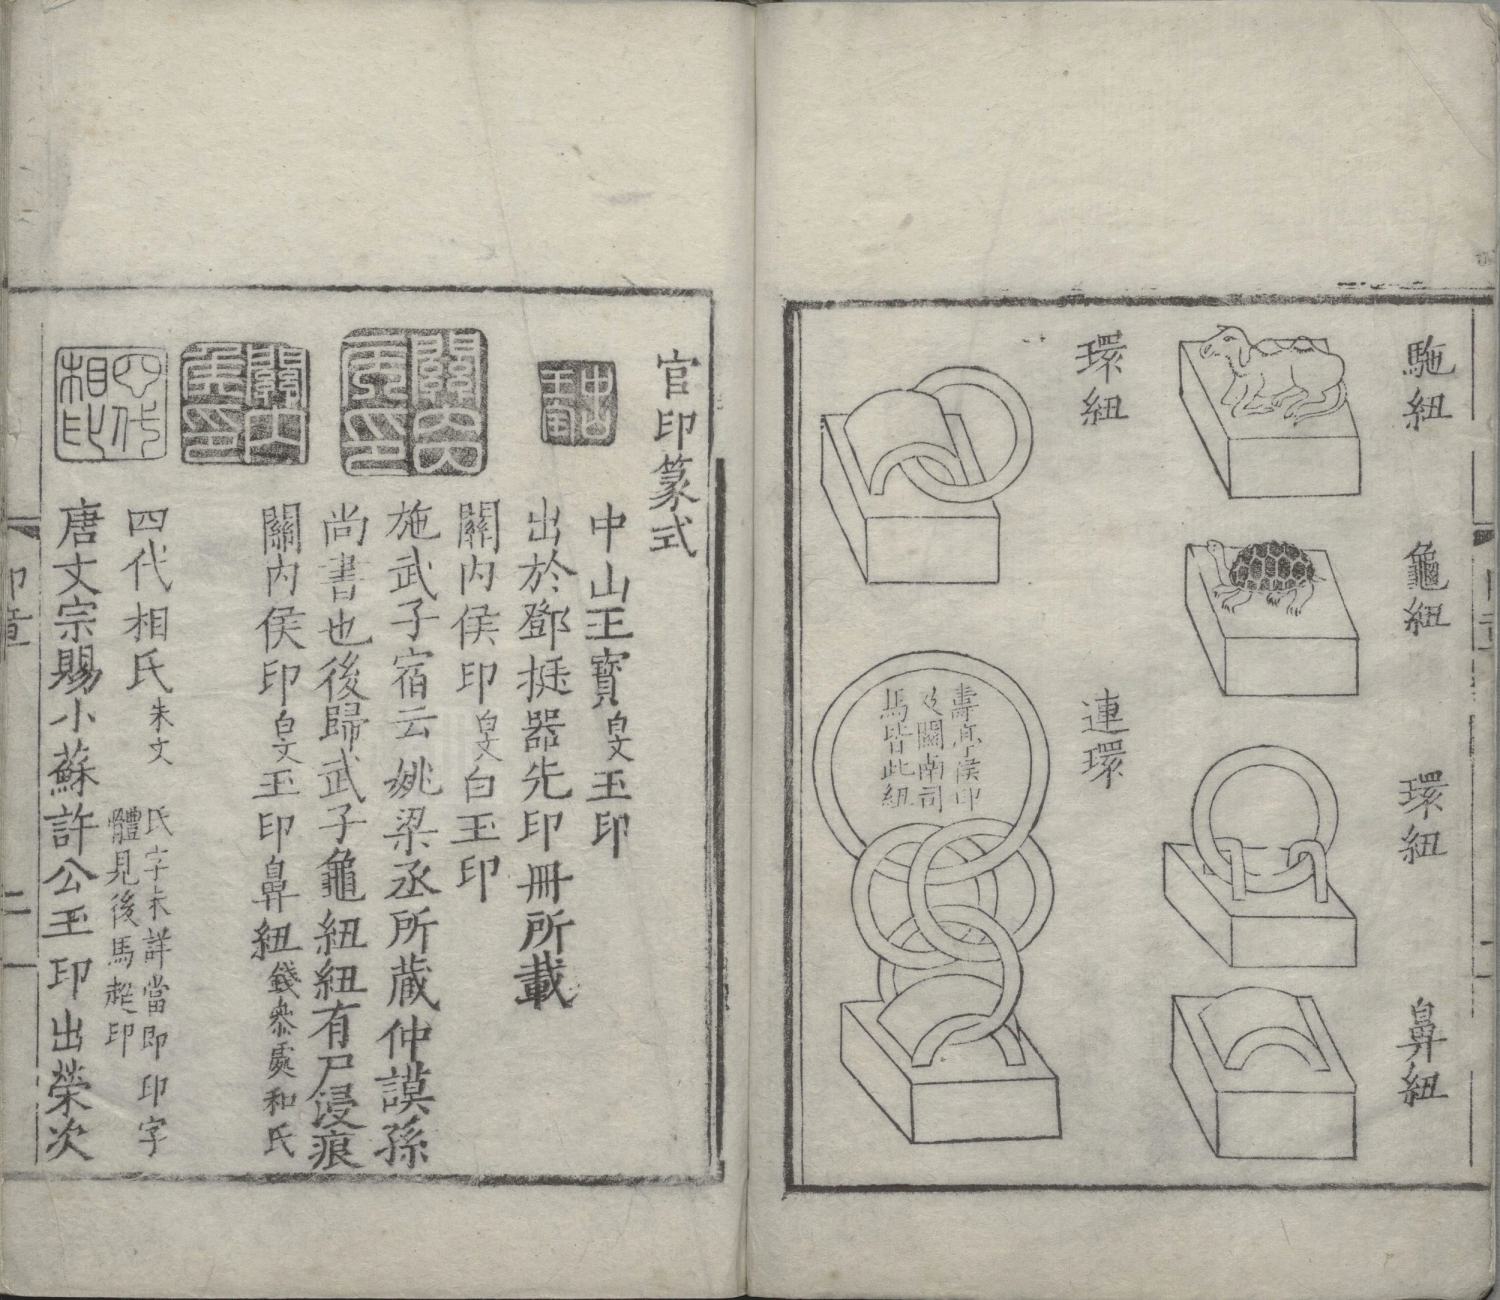 駞紐
龜紐
環紐
鼻紐
環紐
連環
壽亭侯印
及關南司
馬皆此紐
官印篆式
中山王寶白文玉印
出於鄧挺器先印冊所載
關内侯印白文白玉印
施武子宿云姚梁丞所藏仲謨孫
尚書也後歸武子龜紐紐有尸浸痕
關内侯印白文玉印鼻紐錢叅處和氏
四代相氏朱文
氏字未詳當即印字
體見後馬起印
唐文宗賜小蘇許公玉印出榮次
中山王寶
關内侯印
關内侯印
四代相印
印章